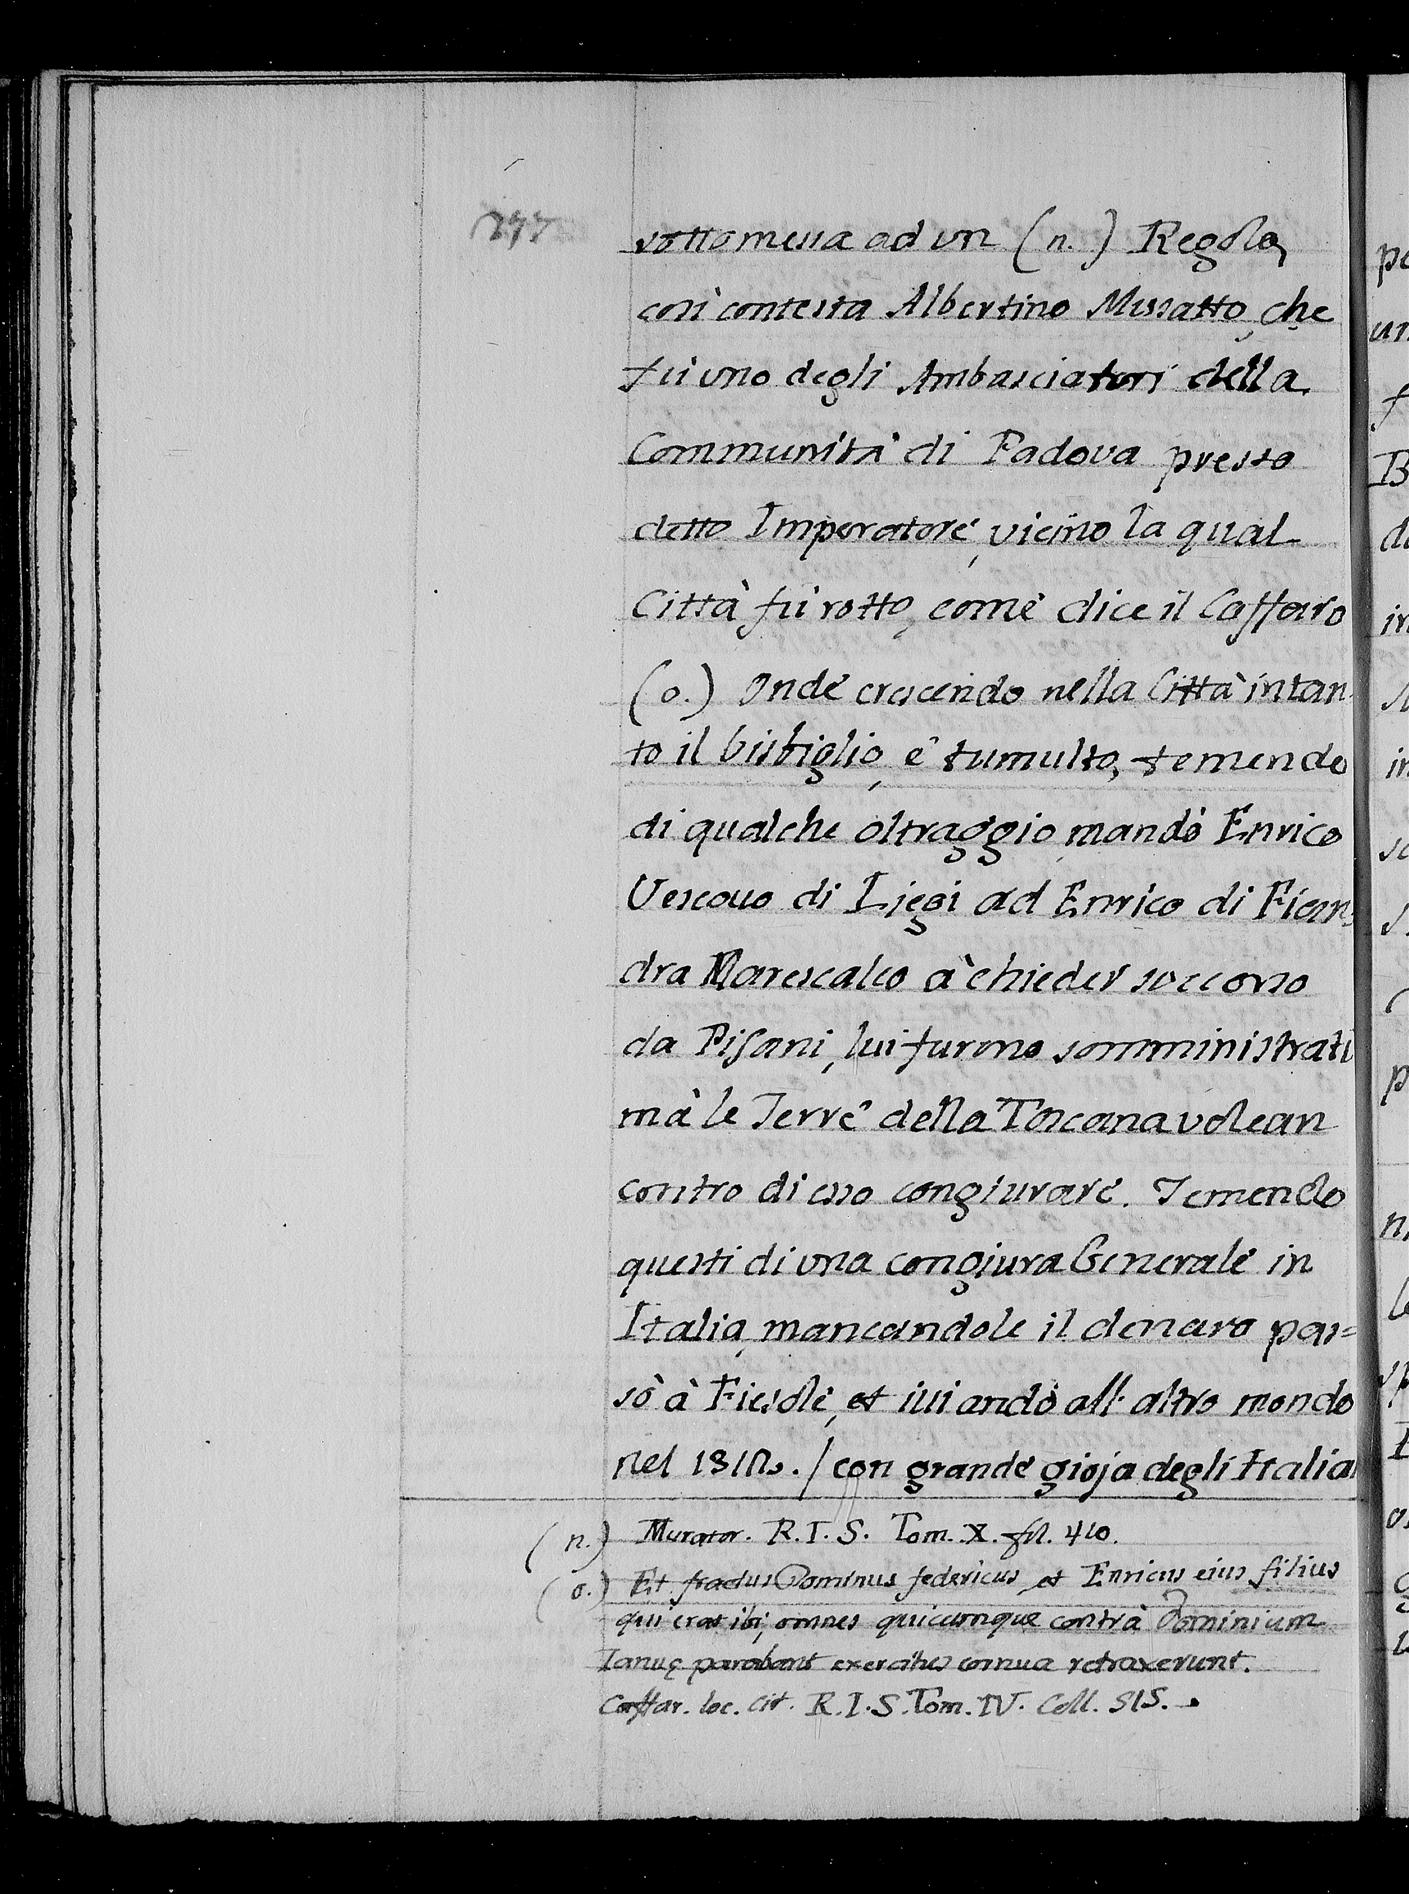 277
sottomessa ad un (n.) Regola,
così contesta Albertino Mussatto, che
fù uno degli Ambasciatori della
Communità di Padova presso
detto Imperatore, vicino la qual
Città fù rotto, come dice il Caffaro
(o.) Onde crescendo nella Città intan-
to il bisbiglio, e tumulto, temendo
di qualche oltraggio mandò Enrico
Vescovo di Liegi ad Enrico di Fian-
dra Marescalco à chieder soccorso
da Pisani, lui furono somministrati
mà le Terre della Toscana volean
contro di esso congiurare. Temendo
questi di una congiura Generale in
Italia, mancandole il denaro pas=
sò à Fiesole, et ivi andò all'altro mondo
nel 1312. / con grande gioja degli Italia
(n.) Murator. R. I. S. Tom. X. fol. 410.
(o.) Et fractus Dominus federicus, et Enricus eius filius
qui erat ibi, omnes quicumque contrà Dominium
Ianuę parabant exercitus cornua retraxerunt.
Caffar. loc. cit. R. I. S. Tom. IV. Coll. 515.